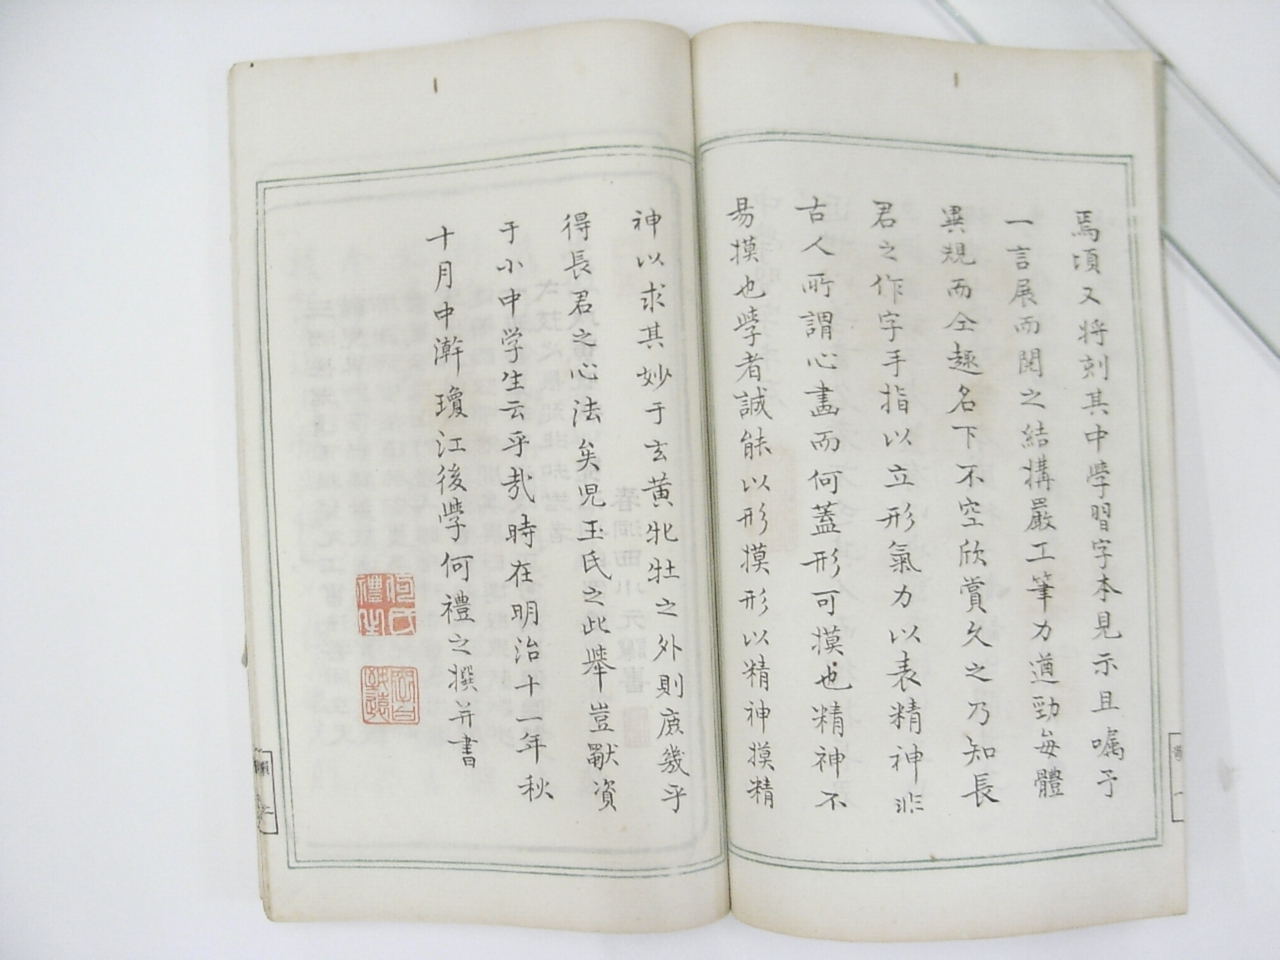 焉頃又将刻其中學習字本見示且囑予
一言展而閲之結構嚴工筆力遒勁每體
異規而仝趣名下不空欣賞久之乃知長
君之作字手指以立形氣力以表精神非
古人所謂心畵而何蓋形可摸也精神不
易摸也學者誠能以形摸形以精神摸精
神以求其妙于玄黄牝牡之外則庶幾乎
得長君之心法矣児玉氏之此舉豈獸資
于小中学生云乎哉時在明治十一年秋
十月中澣瓊江後學何禮之撰并書
何氏禮之